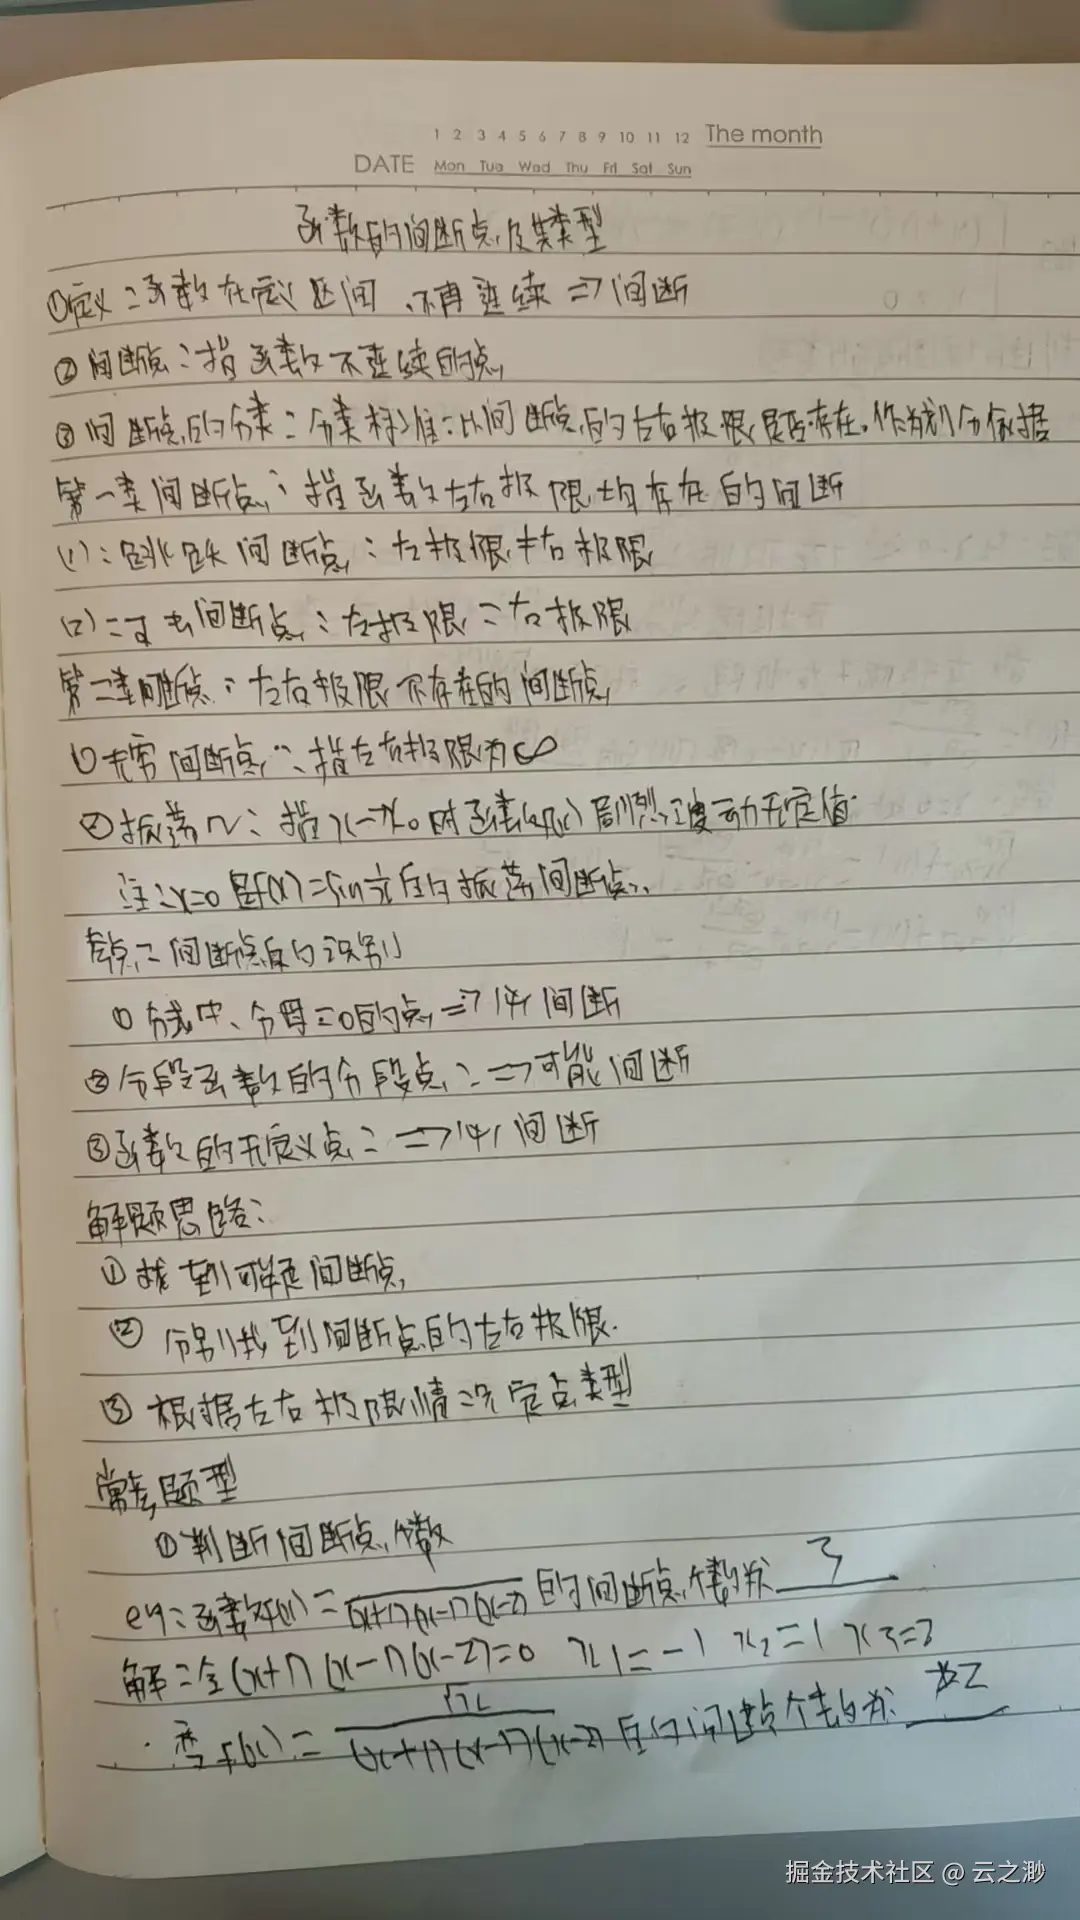 1 2 3 4 5 6 7 8 9 10 11 12 The month
DATE Mon Tue Wed Thu Fri Sat Sun
函数的间断点及其类型
①定义:函数在定义区间,不再连续⇒间断
②间断点:指函数不连续的点
③间断点的分类:分类标准:以间断点的左右极限是否存在,作为划分依据
第一类间断点:指函数左右极限均存在的间断
(1):跳跃间断点:左极限≠右极限
(2):可去间断点:左极限=右极限
第二类间断点:左右极限不存在的间断点
①无穷间断点:指左右极限为∞
②振荡~:指x→x₀时函数f(x)剧烈波动无定值
注:x=0是f(x)=sin 1/x的振荡间断点
考点二间断点的识别
①分式中、分母=0的点⇒必间断
②分段函数的分段点:⇒可能间断
③函数的无定义点:⇒必间断
解题思路:
①找到可疑间断点
②分别找到间断点的左右极限.
③根据左右极限情况定点类型
常考题型
①判断间断点个数
eg:函数f(x)=1/(x+1)(x-1)(x-2)的间断点个数为 3
解:令(x+1)(x-1)(x-2)=0 x₁=-1 x₂=1 x₃=2
变f(x)=√x/(x+1)(x-1)(x-2)的间断点个数为 2
掘金技术社区 @ 云之渺